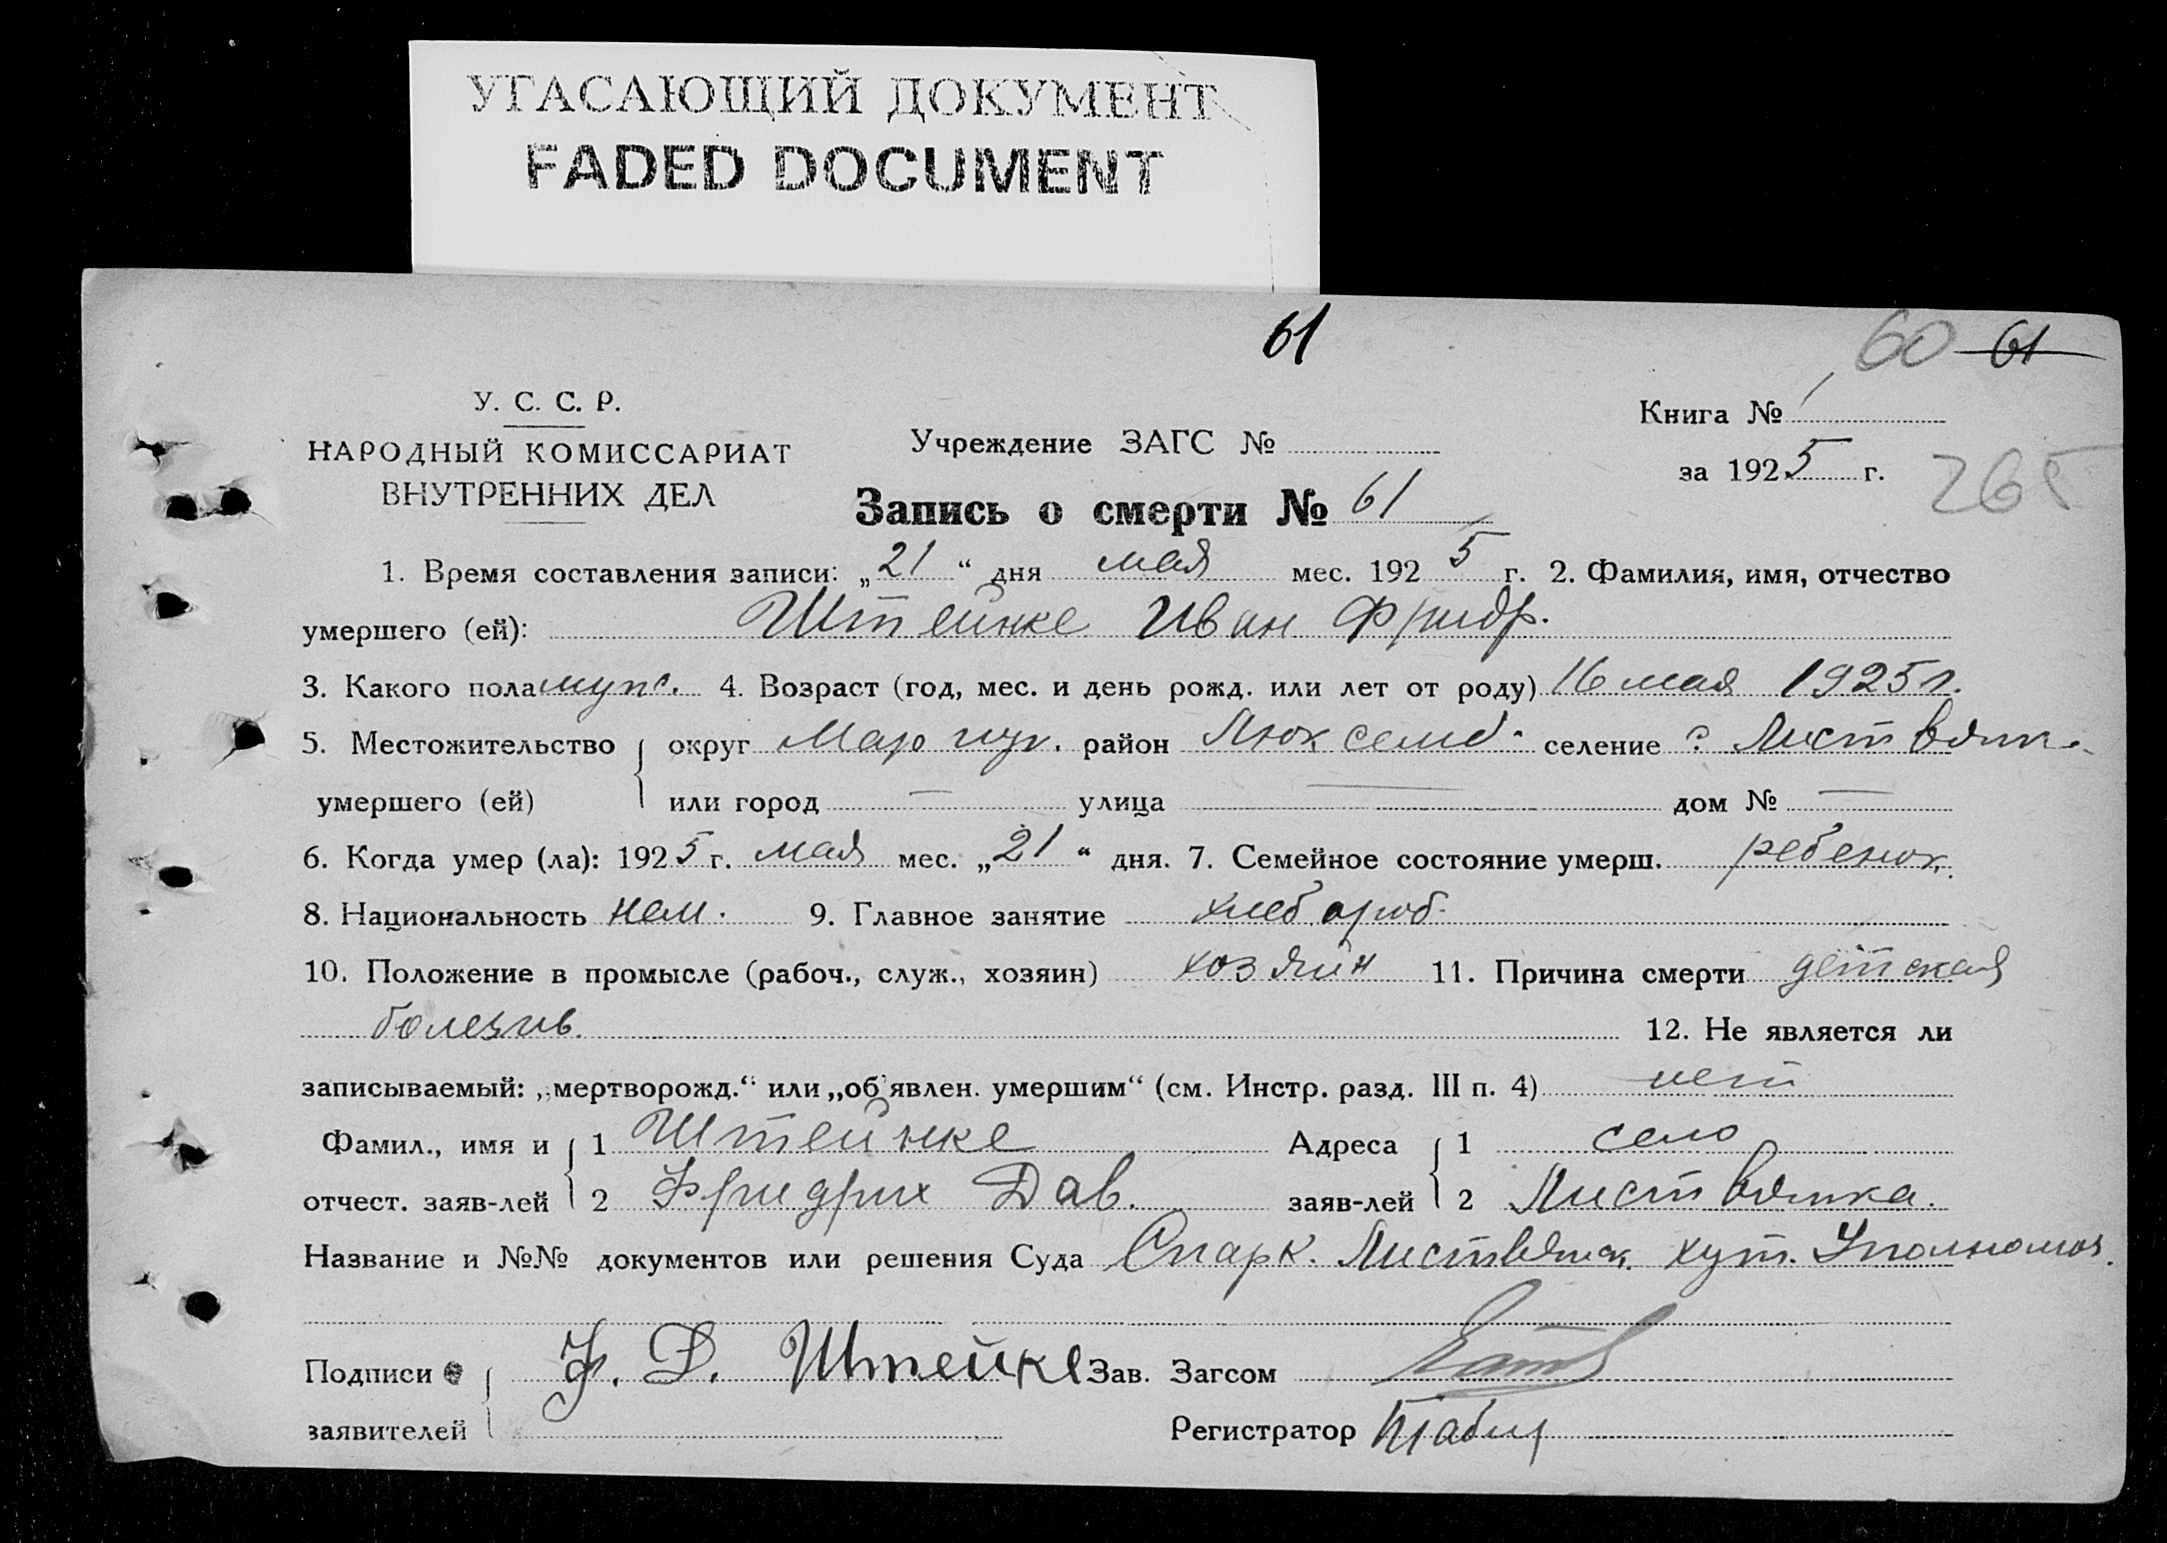 УГАСАЮЩИЙ ДОКУМЕНТ
FADED DOCUMENT
61
60 61
У. С. С. Р.
НАРОДНЫЙ КОМИССАРИАТ
ВНУТРЕННИХ ДЕЛ
Учреждение ЗАГС №
Книга № 1
за 1925 г.
265
Запись о смерти № 61
1. Время составления записи: „21“ дня мая мес. 1925 г. 2. Фамилия, имя, отчество
умершего (ей): Штейнке Иван Фридр.
3. Какого пола мужс. 4. Возраст (год, мес. и день рожд. или лет от роду) 16 мая 1925 г.
5. Местожительство округ Мариуп. район Люксемб. селение с. Листвянка
умершего (ей) или город — улица — дом № —
6. Когда умер (ла): 1925 г. мая мес. „21“ дня. 7. Семейное состояние умерш. ребенок.
8. Национальность нем. 9. Главное занятие хлебороб.
10. Положение в промысле (рабоч., служ., хозяин) хозяин 11. Причина смерти детская
болезнь. 12. Не является ли
записываемый: „мертворожд.“ или „об'явлен. умершим“ (см. Инстр. разд. III п. 4) нет
Фамил., имя и 1 Штейнке Адреса 1 село
отчест. заяв-лей 2 Фридрих Дав. заяв-лей 2 Листвянка.
Название и №№ документов или решения Суда Листвянск. хут. Уполномоч.
Подписи Ф. Д. Штейнке Зав. Загсом
заявителей Регистратор